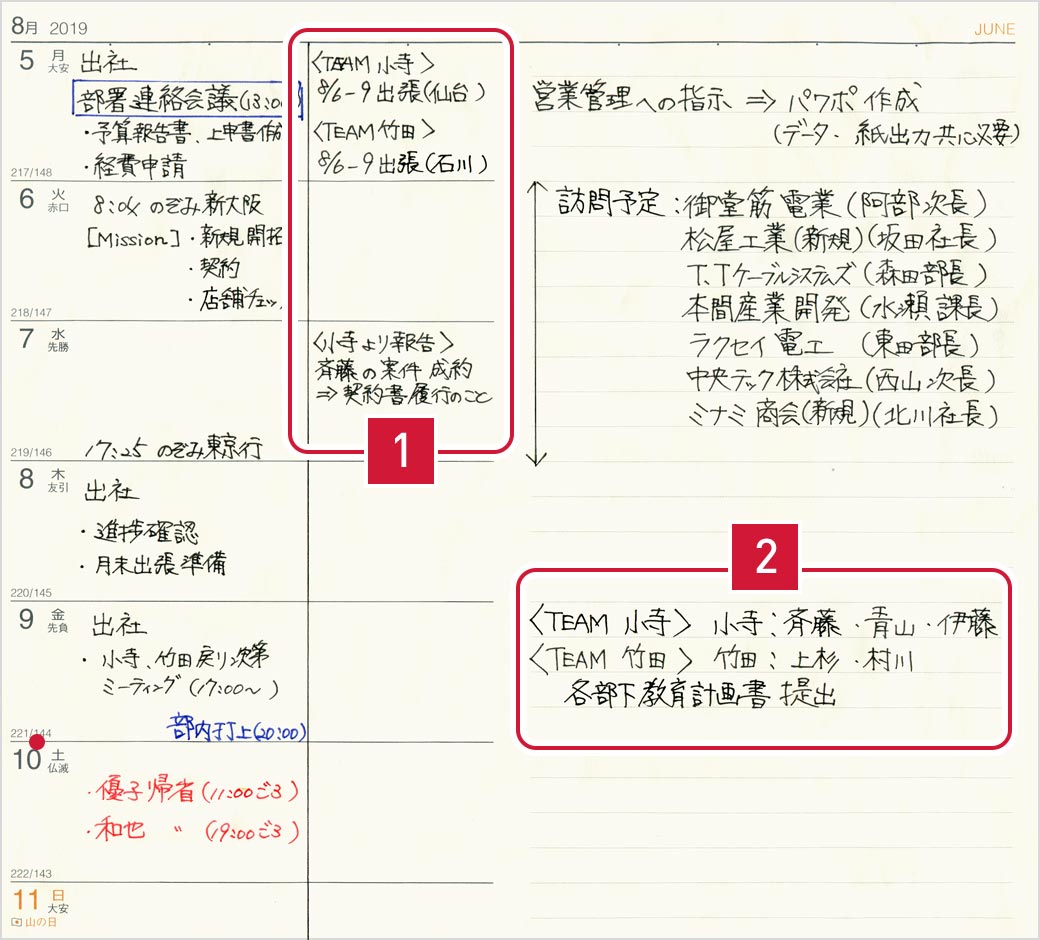 8月 2019
JUNE
5 月 大安
出社
部署連絡会議(13:00
・予算報告書、上申書
・経費申請
217/148
〈TEAM 小寺〉
8/6-9 出張(仙台)
〈TEAM 竹田〉
8/6-9 出張(石川)
6 火 赤口
8:04 のぞみ新大阪
[Mission]・新規開拓
・契約
・店舗チェッ
218/147
7 水 先勝
17:25 のぞみ東京行
219/146
〈小寺より報告〉
斉藤の案件 成約
⇒契約書履行のこと
1
8 木 友引
出社
・進捗確認
・月末出張準備
220/145
9 金 先負
出社
・小寺、竹田戻り次第
ミーティング(17:00～)
部内打上(20:00)
221/144
10 土 仏滅
・優子帰省(11:00ごろ)
・和也 〃 (19:00ごろ)
222/143
11 日 大安
山の日
営業管理への指示 ⇒ パワポ作成
(データ・紙出力共に必要)
訪問予定:御堂筋電業(阿部次長)
松屋工業(新規)(坂田社長)
T.Tケーブルシステムズ(森田部長)
本間産業開発(水瀬課長)
ラクセイ電工 (東田部長)
中央テック株式会社(西山次長)
ミナミ商会(新規)(北川社長)
2
〈TEAM 小寺〉 小寺:斉藤・青山・伊藤
〈TEAM 竹田〉 竹田:上杉・村川
各部下教育計画書 提出